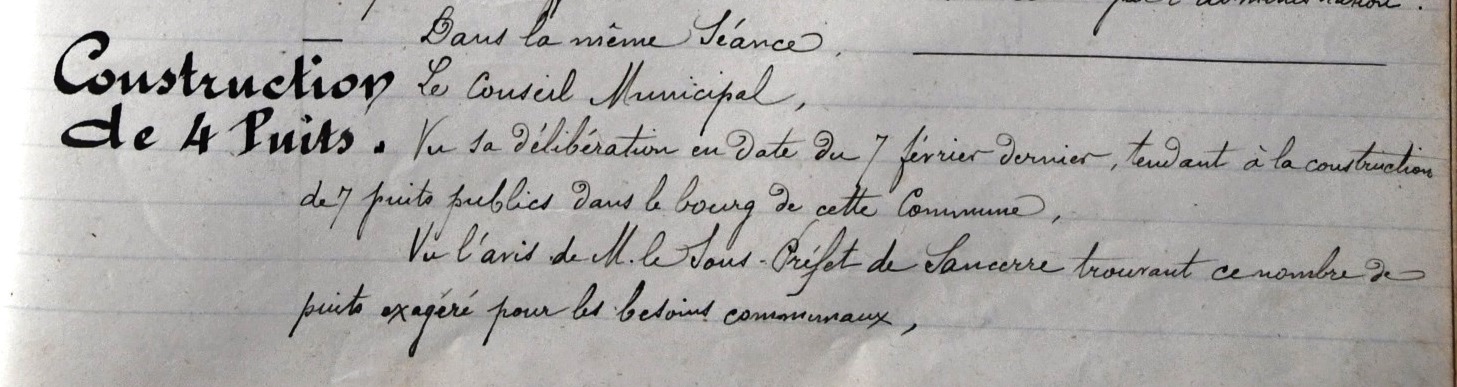 par l'administration.
— Dans la même Séance,
Construction
de 4 Puits.
Le Conseil Municipal,
Vu sa délibération en date du 7 février dernier, tendant à la construction
de 7 puits publics dans le bourg de cette Commune,
Vu l'avis de M. le Sous-Préfet de Sancerre trouvant ce nombre de
puits exagéré pour les besoins communaux,